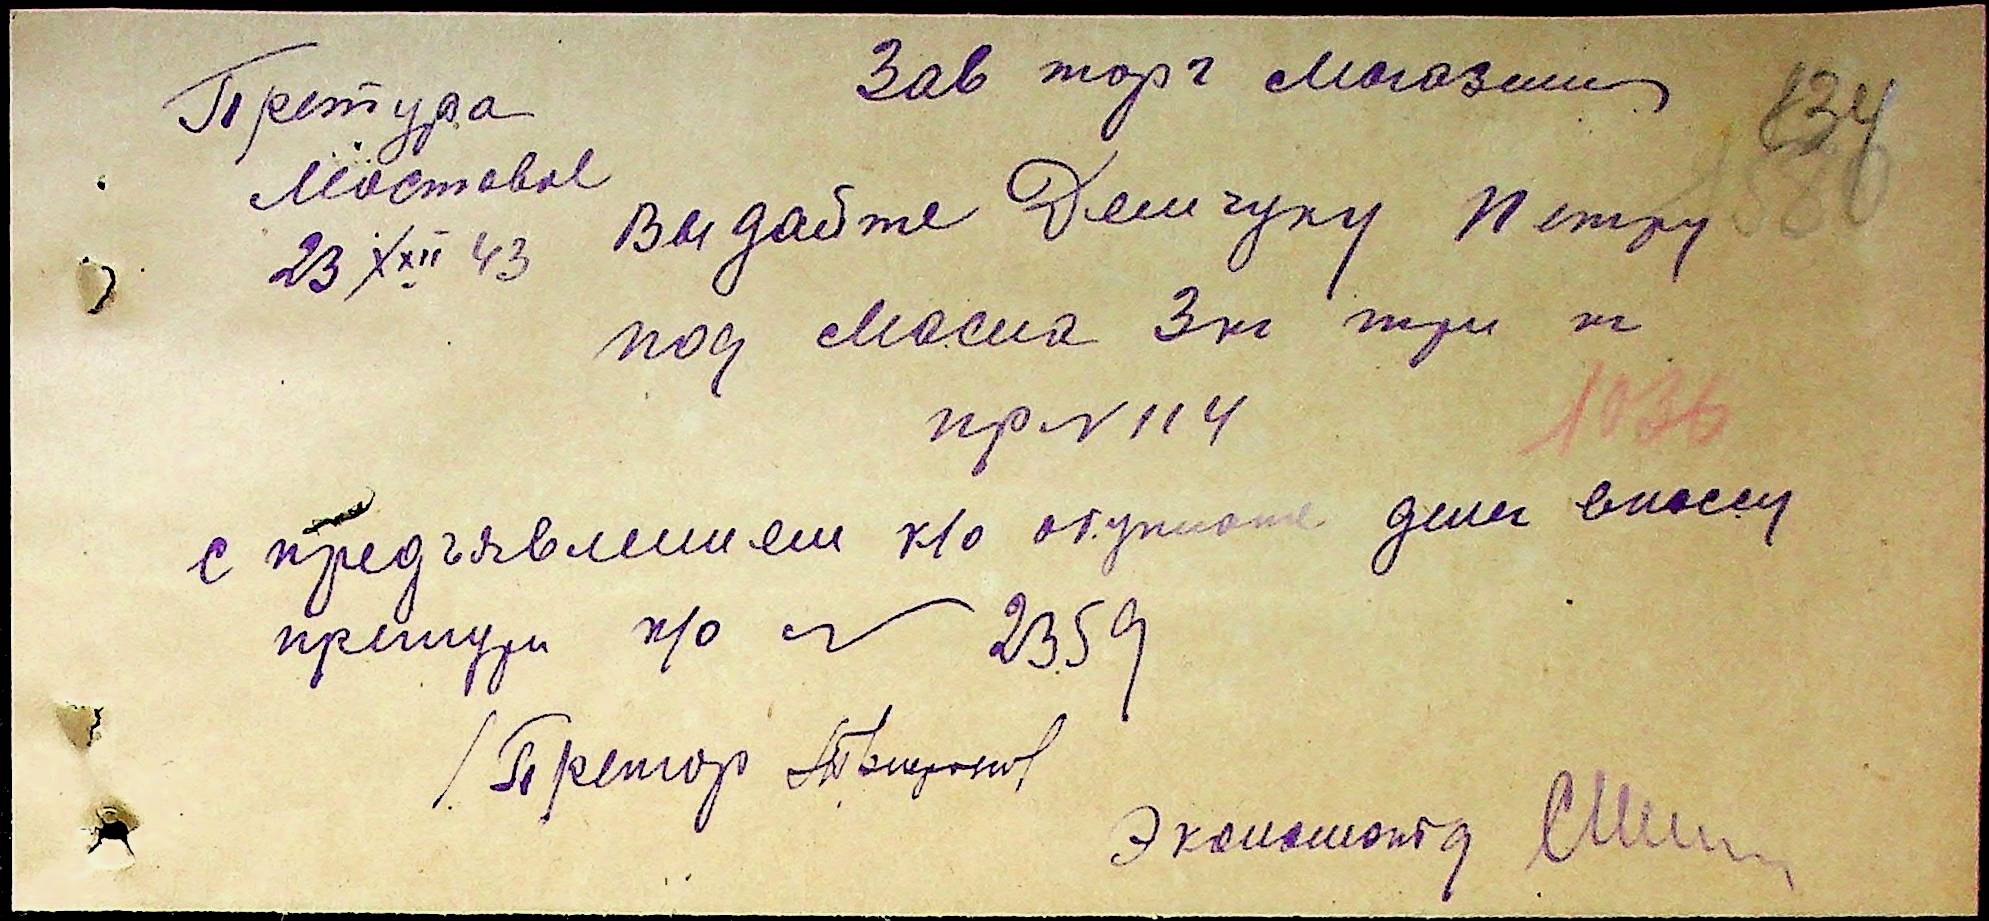 Претура
Мостовое
23 XII 43
Зав торг Магазин
134
1586
Выдайте Демчуку Петру
под Масла 3 кг три кг
пр № 114
1036
с предъявлением к/о об уплате денег в кассу
претуры к/о № 2359
Претор
Эконом отд